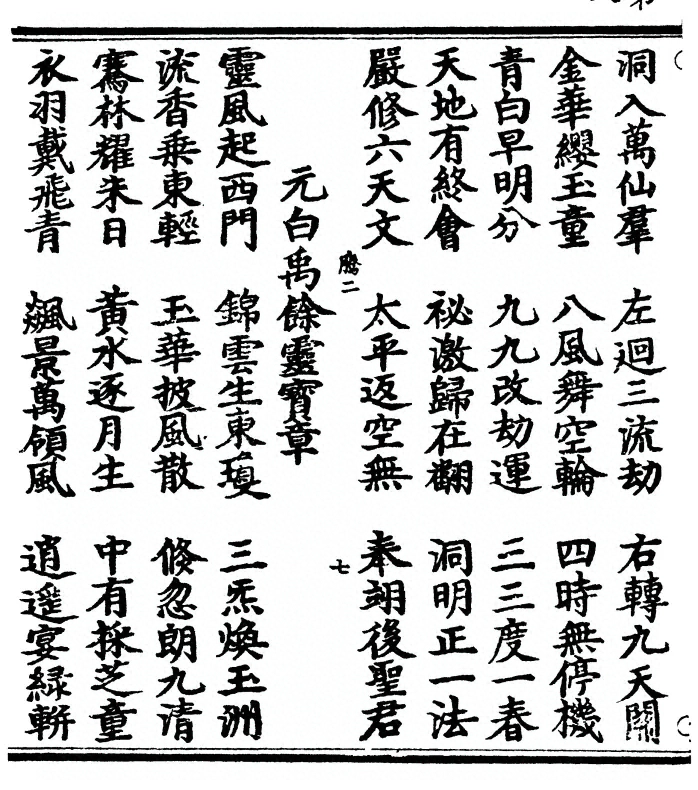 洞入萬仙羣　左迴三流劫　右轉九天關
金華纓玉童　八風舞空輪　四時無停機
青白早明分　九九改劫運　三三度一春
天地有終會　祕激歸在翻　洞明正一法
嚴修六天文　太平返空無　奉翊後聖君
騰二　七
元白禹餘靈寶章
靈風起西門　錦雲生東㻛　三炁煥玉洲
流香乗東輕　玉華披風散　倏忽朗九清
騫林耀朱日　黃水逐月生　中有採芝童
衣羽戴飛青　飆景萬領風　逍遥宴緑軿